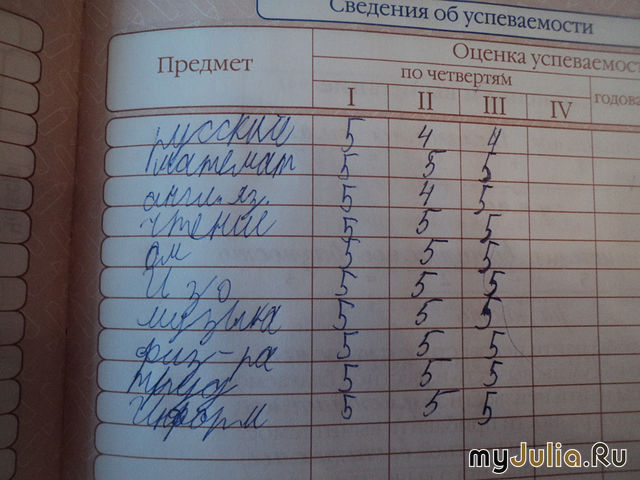 Сведения об успеваемости
Предмет
Оценка успеваемос
по четвертям
годова
I II III IV
русский 5 4 4
математ 5 5 5
англ. яз. 5 4 5
чтение 5 5 5
ом 5 5 5
Изо 5 5 5
музыка 5 5 5
физ-ра 5 5 5
труд 5 5 5
Информ 5 5 5
myJulia.Ru